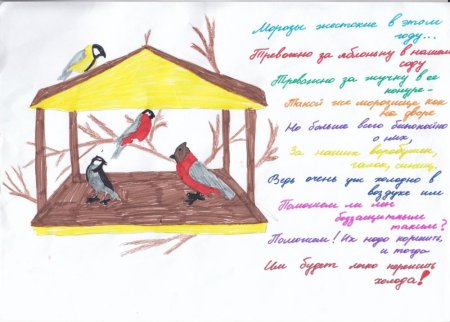 Морозы жестокие в этом
году...
Тревожно за яблоньку в нашем
саду
Тревожно за жучку в ее
конуре -
Такой же морозище как
на дворе
Но больше всего беспокойно
о них,
За наших воробушек,
галок, синиц,
Ведь очень уж холодно в
воздухе им
Поможем ли мы
беззащитным
таким?
Поможем! Их надо кормить,
и тогда
Им будет легко пережить
холода!